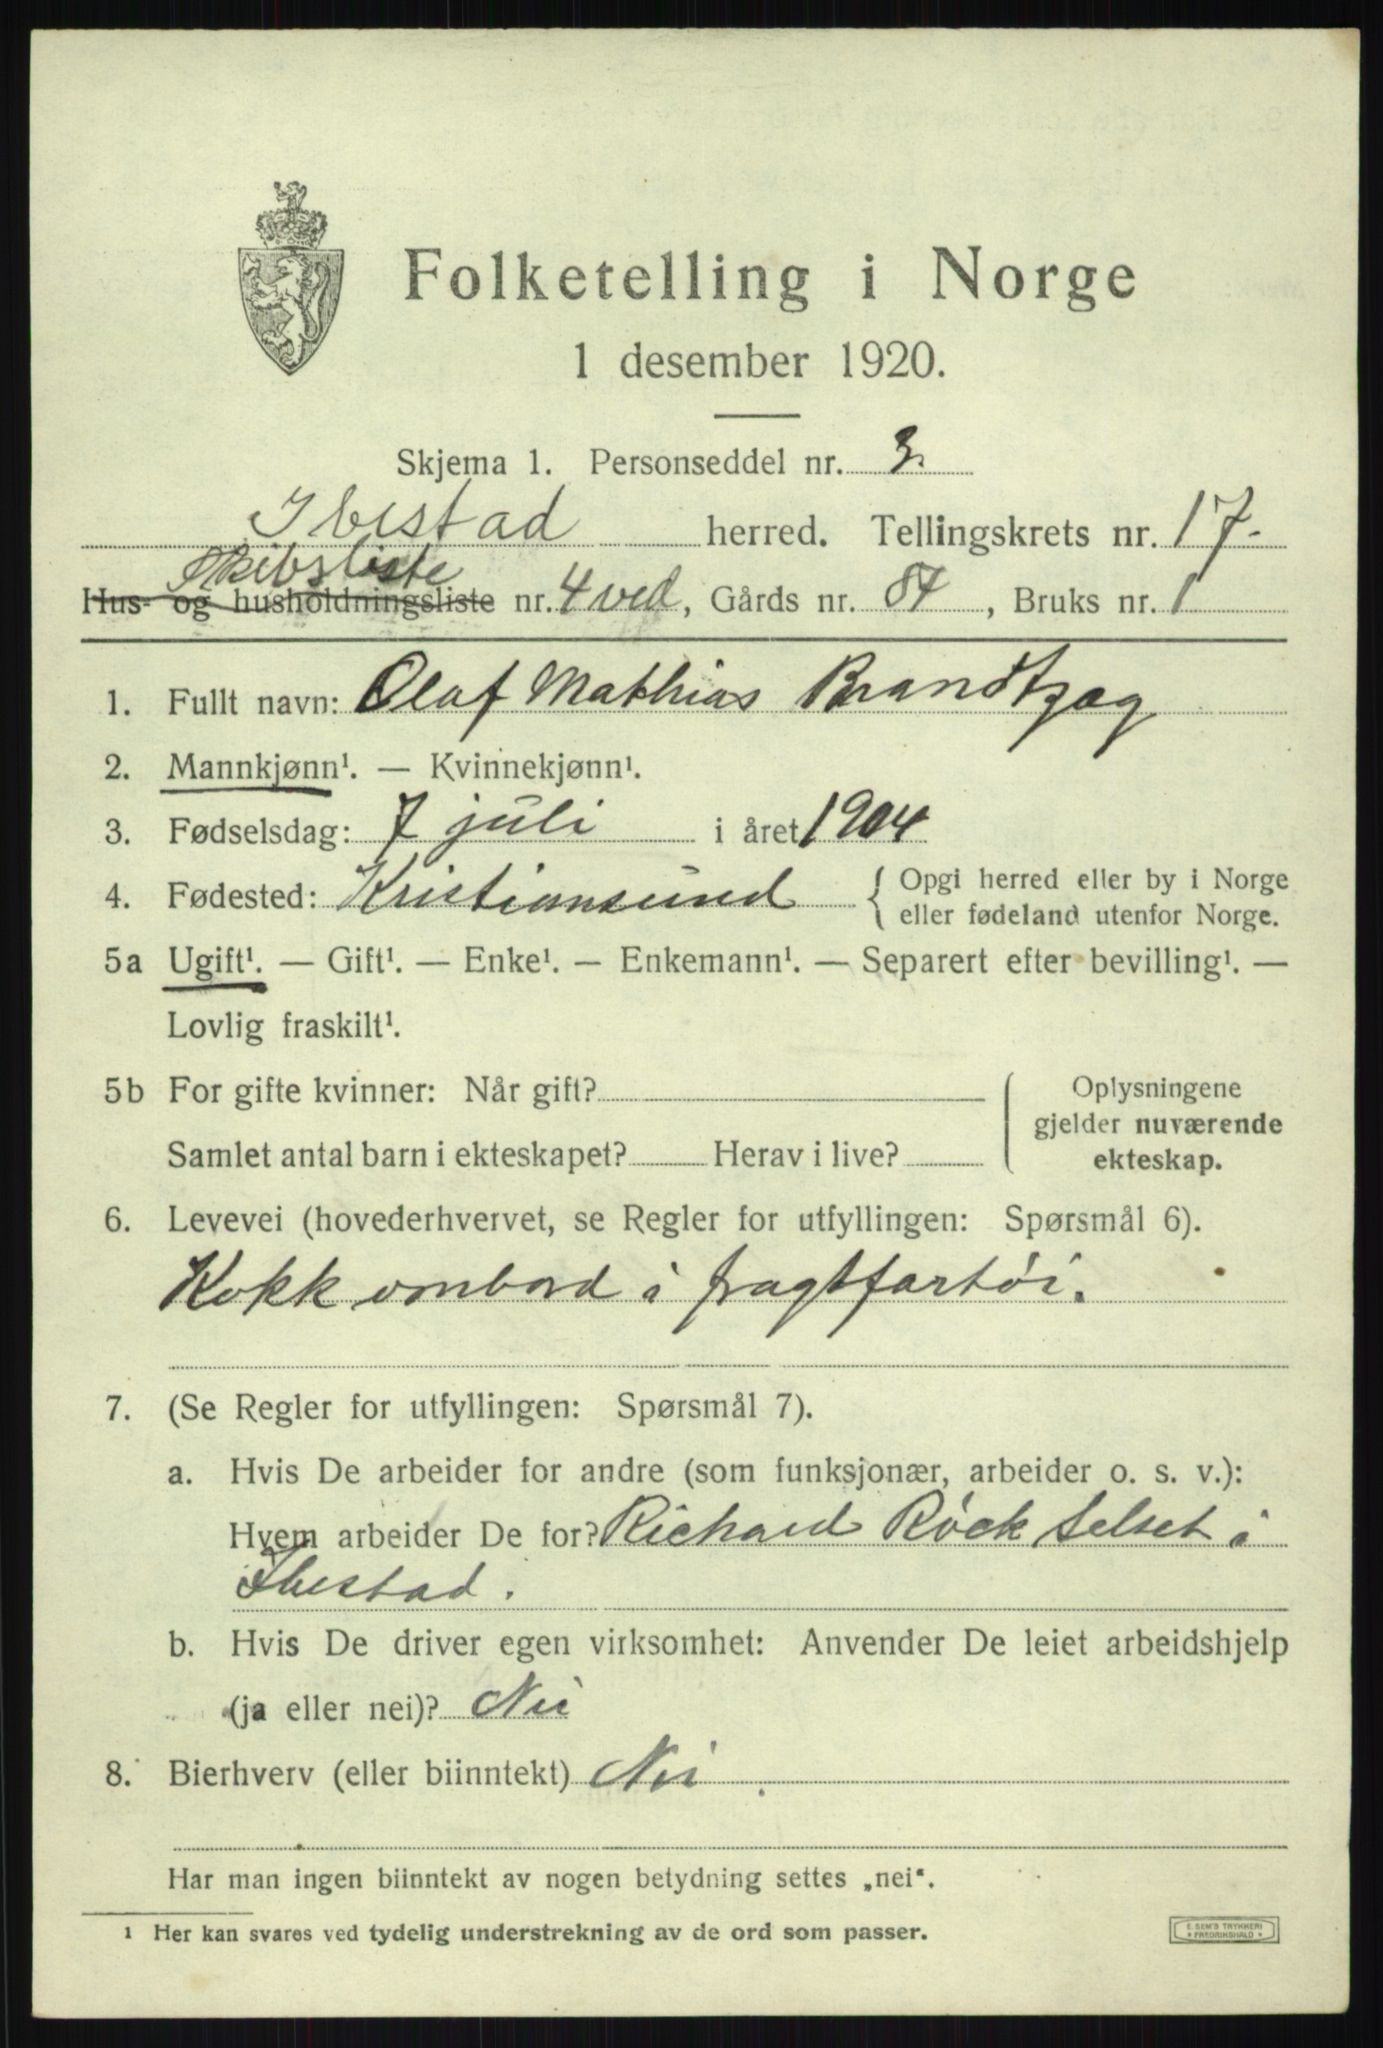 Folketelling i Norge
1 desember 1920.
Skjema 1. Personseddel nr. 3.
Ibestad herred. Tellingskrets nr. 17-
Skibsliste
Hus- og husholdningsliste nr. 4 ved, Gårds nr. 84, Bruks nr. 1
1. Fullt navn: Olaf Mathias Brandtzæg
2. Mannkjønn¹. — Kvinnekjønn¹.
3. Fødselsdag: 7 juli i året 1904
4. Fødested: Kristiansund { Opgi herred eller by i Norge
eller fødeland utenfor Norge.
5a Ugift¹. — Gift¹. — Enke¹. — Enkemann¹. — Separert efter bevilling¹. —
Lovlig fraskilt¹.
5b For gifte kvinner: Når gift? Oplysningene
gjelder nuværende
Samlet antal barn i ekteskapet? Herav i live? ekteskap.
6. Levevei (hovederhvervet, se Regler for utfyllingen: Spørsmål 6).
Kokk ombord i fragtfartöi.
7. (Se Regler for utfyllingen: Spørsmål 7).
a. Hvis De arbeider for andre (som funksjonær, arbeider o. s. v.):
Hvem arbeider De for? Richard Röck Selset i
Ibestad.
b. Hvis De driver egen virksomhet: Anvender De leiet arbeidshjelp
(ja eller nei)? Nei
8. Bierhverv (eller biinntekt) Nei
Har man ingen biinntekt av nogen betydning settes „nei".
¹ Her kan svares ved tydelig understrekning av de ord som passer.
E. SEM'S TRYKKERI
* FREDRIKSHALD *